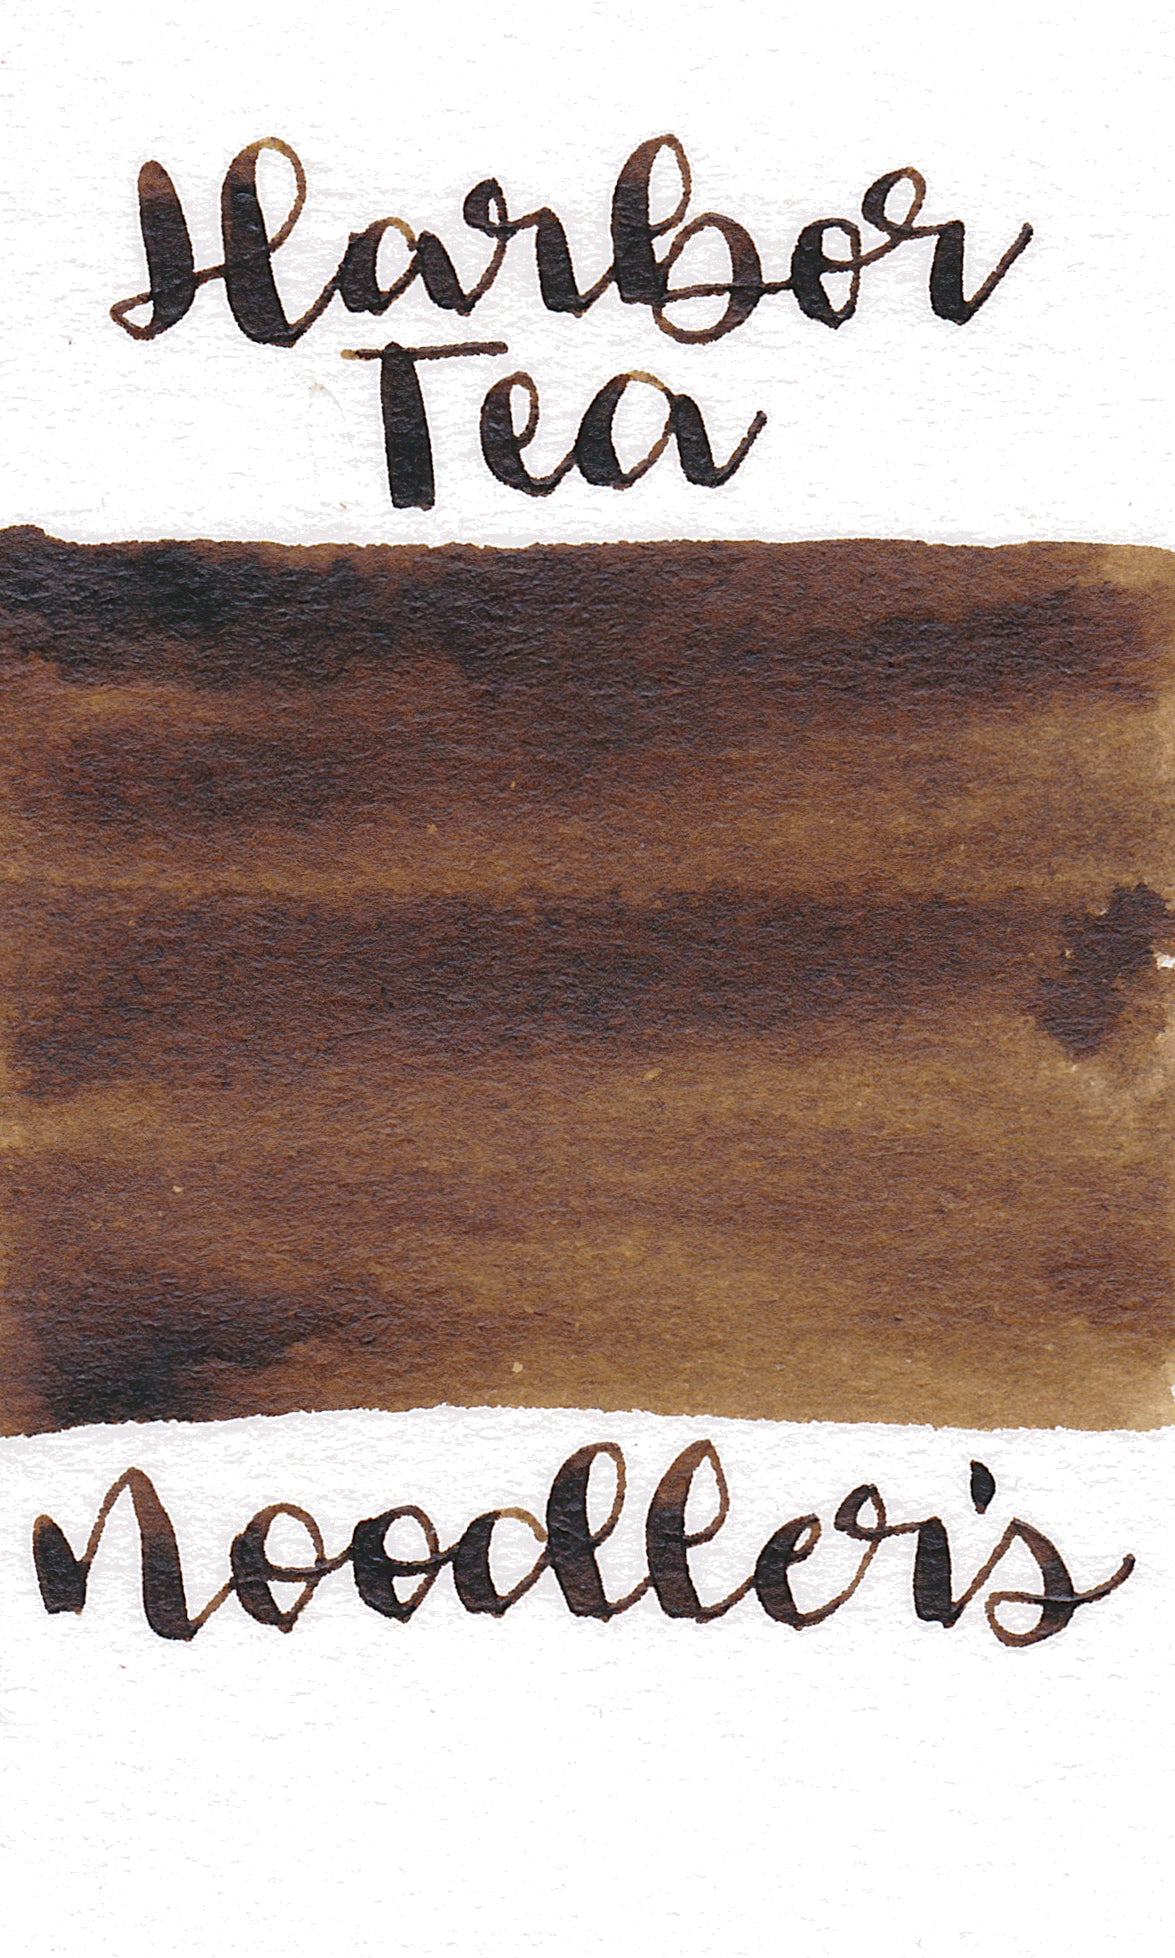 Harbor
Tea
Noodler's